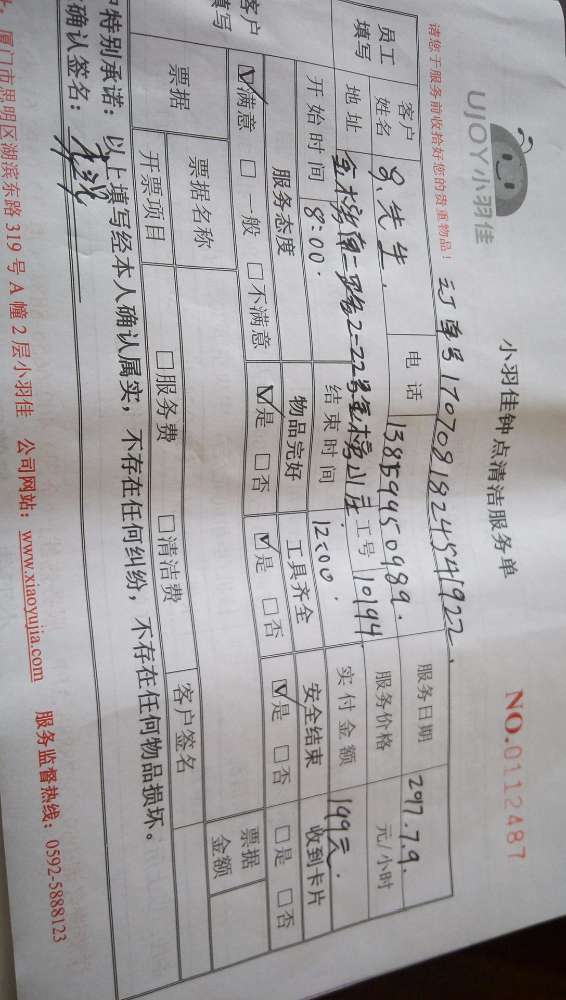 UJOY小羽佳
小羽佳钟点清洁服务单
NO.0112487
请您于服务前收拾好您的贵重物品！
订单号1707081824541922.
员工
填写
客户
姓名
吕先生.
电话
13859950989.
服务日期
2017.7.9.
地址
金水湾第二
2-22号金水湾山庄.
工号
10194
服务价格
元/小时
开始时间
8:00.
结束时间
12:00.
实付金额
149元.
客户
填写
服务态度
物品完好
工具齐全
安全结束
收到卡片
☑满意 □一般 □不满意
☑是 □否
☑是 □否
☑是 □否
□是 □否
票据
票据名称
□服务费 □清洁费
客户签名
票据
金额
开票项目
户特别承诺：以上填写经本人确认属实，不存在任何纠纷，不存在任何物品损坏。
确认签名：
厦门市思明区湖滨东路319号A幢2层小羽佳 公司网站：www.xiaoyujia.com 服务监督热线：0592-5888123